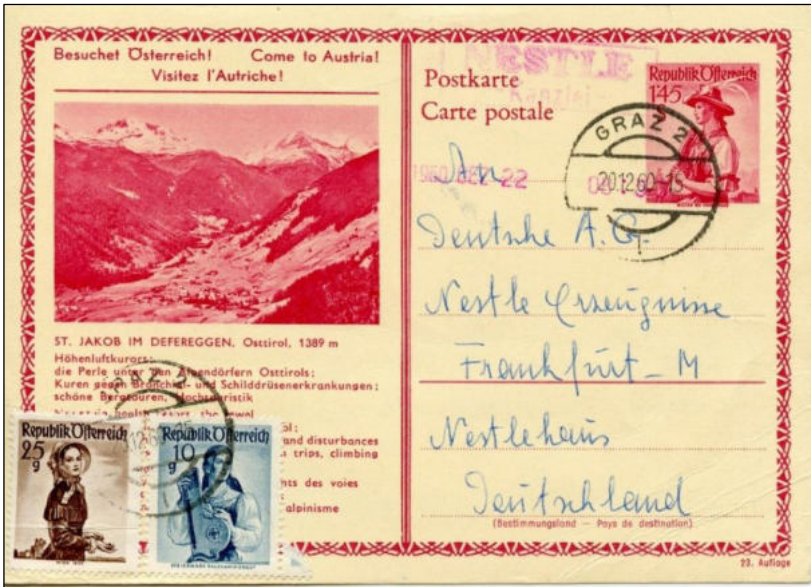 Besuchet Österreich! Come to Austria!
Visitez l'Autriche!
ST. JAKOB IM DEFEREGGEN, Osttirol, 1389 m
Höhenluftkurort:
die Perle unter den Alpendörfern Osttirols;
Kuren gegen Bronchial- und Schilddrüsenerkrankungen;
schöne Bergtouren, Hochtouristik
health resort, the jewel
and disturbances
trips, climbing
des voies
alpinisme
Republik Österreich
25
g
Republik Österreich
10
g
NESTLE
Kanzlei
Postkarte
Carte postale
Republik Österreich
145
GRAZ 2
20.12.60-15
1
1960 DEZ 22
An
Deutsche A.G.
Nestle Erzeugnisse
Frankfurt - M
Nestlehaus
Deutschland
(Bestimmungsland — Pays de destination)
23. Auflage